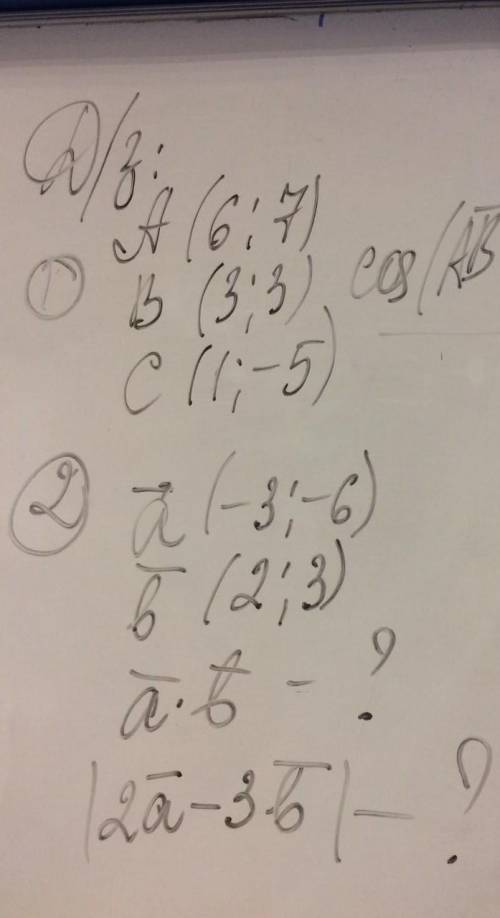 Д/з:
① A (6; 7)
B (3; 3) cos(AB̅
C (1; -5)
② a̅ (-3; -6)
b̅ (2; 3)
a̅ · b̅ - ?
|2a̅ - 3·b̅| - ?